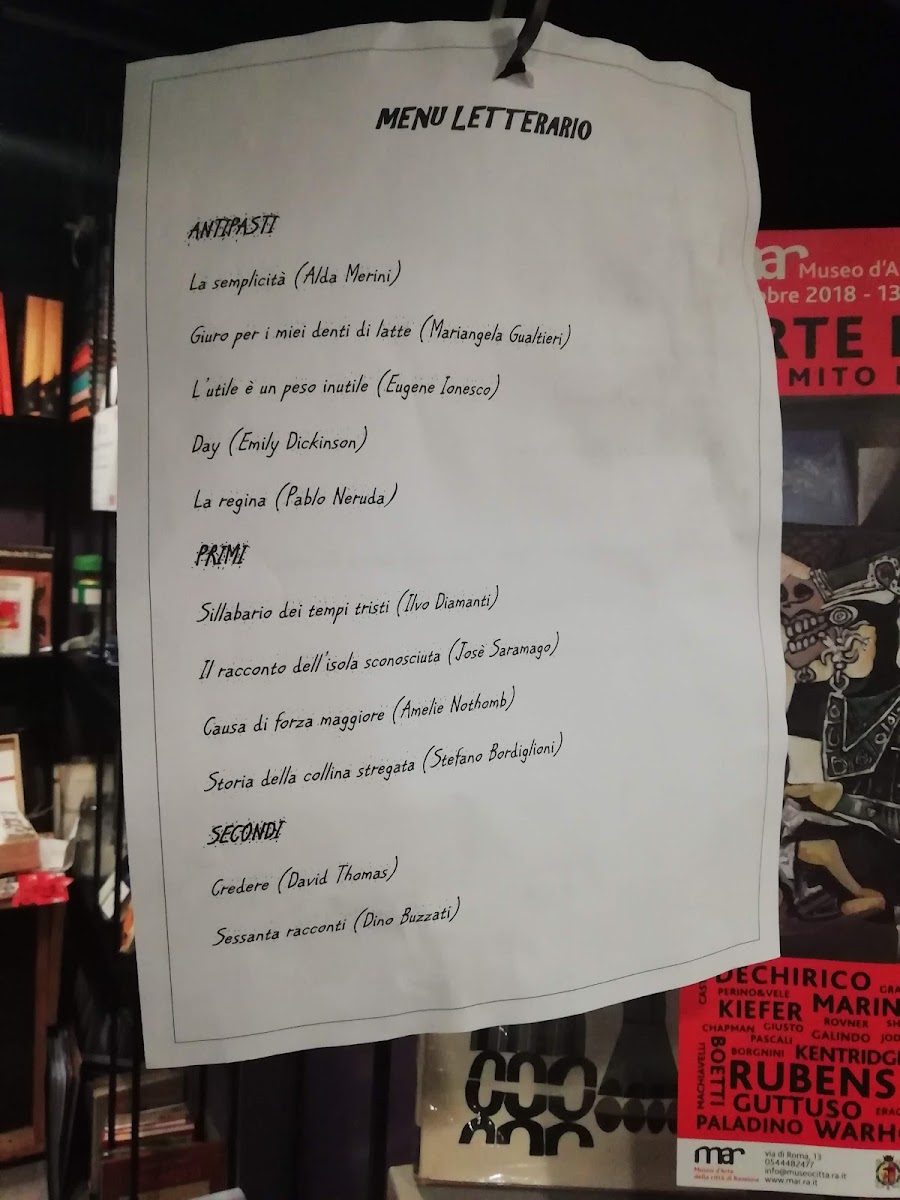 MENU LETTERARIO
ANTIPASTI
La semplicità (Alda Merini)
Giuro per i miei denti di latte (Mariangela Gualtieri)
L'utile è un peso inutile (Eugene Ionesco)
Day (Emily Dickinson)
La regina (Pablo Neruda)
PRIMI
Sillabario dei tempi tristi (Ilvo Diamanti)
Il racconto dell'isola sconosciuta (Josè Saramago)
Causa di forza maggiore (Amelie Nothomb)
Storia della collina stregata (Stefano Bordiglioni)
SECONDI
Credere (David Thomas)
Sessanta racconti (Dino Buzzati)
mar Museo d'A
obre 2018 - 13
RTE
MITO
DECHIRICO GRA
CAS
PERINO&VELE
KIEFER MARIN
ROVNER SH
CHAPMAN GIUSTO GALINDO JOD
PASCALI
BORGNINI KENTRIDGE
MACHIAVELLI
BOETTI
RUBENS
GUTTUSO ERAC
PALADINO WARHO
mar
Museo d'Arte
della città di Ravenna
via di Roma, 13
0544482477
info@museocitta.ra.it
www.mar.ra.it